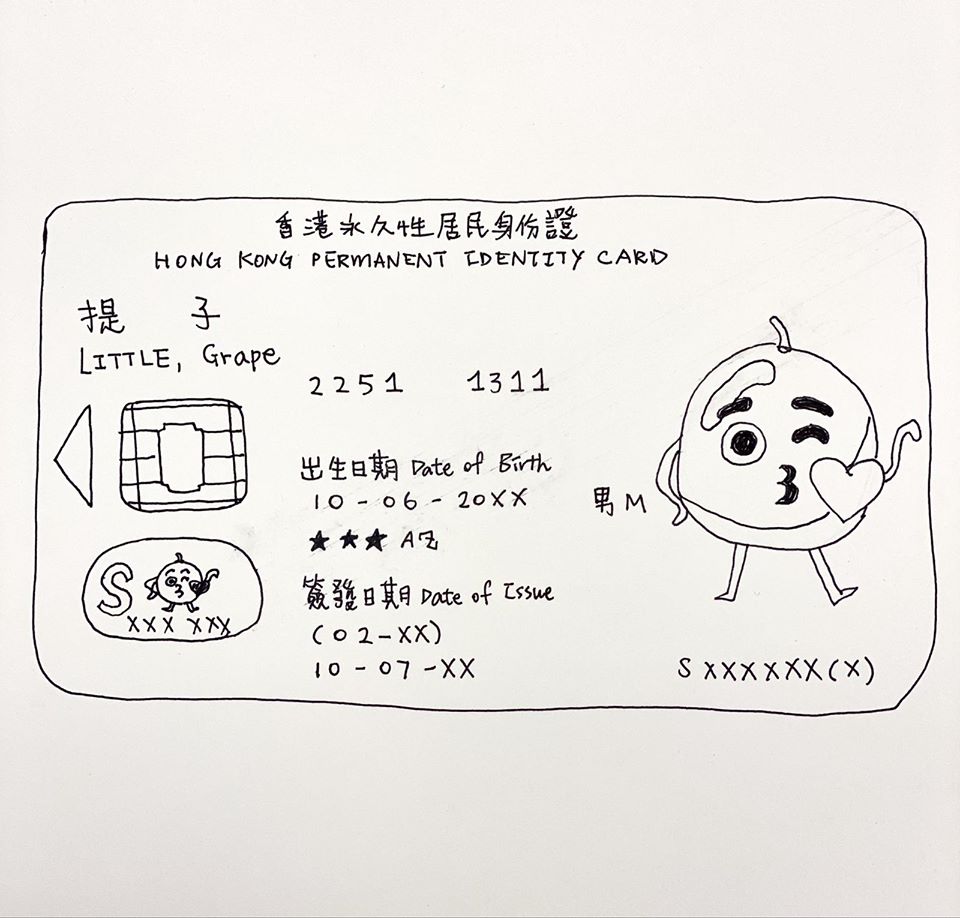 香港永久性居民身份證
HONG KONG PERMANENT IDENTITY CARD
提 子
LITTLE, Grape
2251 1311
出生日期 Date of Birth
10-06-20XX
男 M
★★★AZ
簽發日期 Date of Issue
(02-XX)
10-07-XX
S
XXX XXX
SXXXXXX(X)